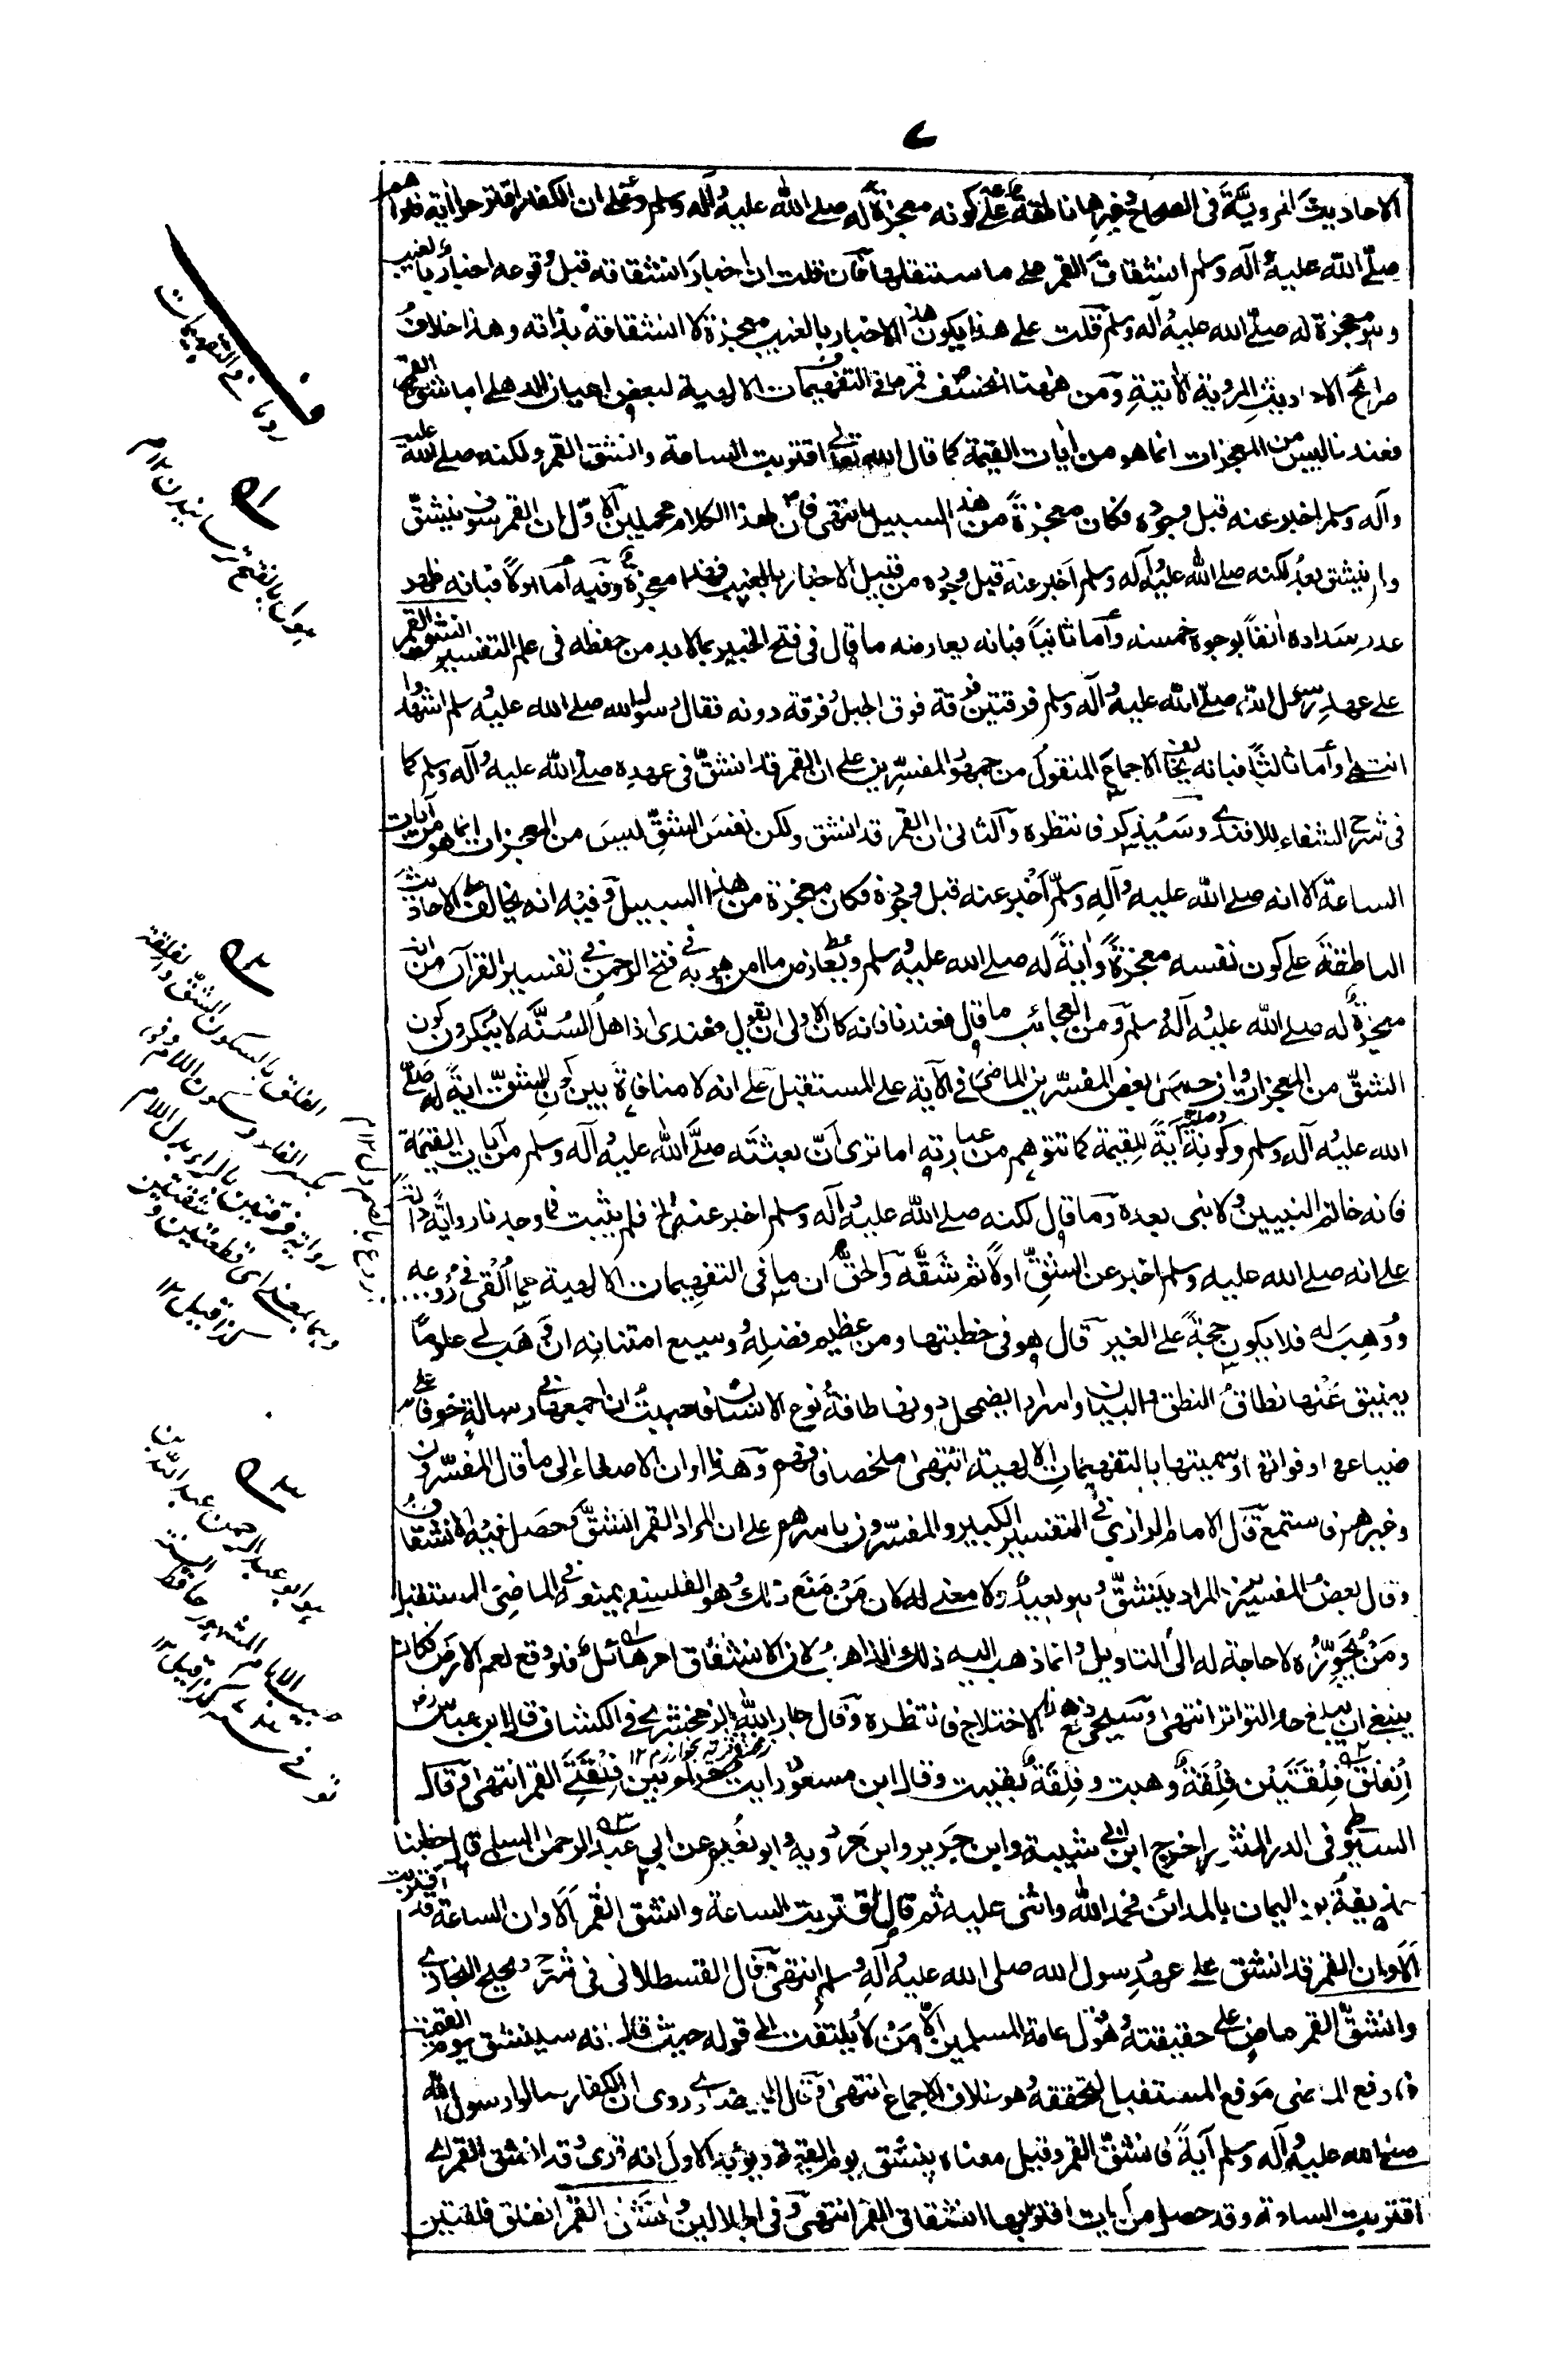 ٧
الاحاديث المروية فى الصحاح وغيرها ناطقة على كونه معجزة له صلى الله عليه وآله وسلم وعلى ان الكفار اقترحوا آية فاراهم
صلى الله عليه وآله وسلم انشقاق القمر على ما سننقلها فان قلت ان اخبار انشقاقه قبل وقوعه اخبار بالغيب
وهو معجزة له صلى الله عليه وآله وسلم قلت على هذا يكون هذا الاخبار بالغيب معجزة لا انشقاقه بذاته وهذا خلاف
صرائح الاحاديث المروية الآتية ومن ههنا انخسف قمر ما فى التفهيمات الالهية لبعض اعيان الدهلى اما شق القمر
فعندنا ليس من المعجزات انما هو من آيات القيمة كما قال الله تعالى اقتربت الساعة وانشق القمر ولكنه صلى الله عليه
وآله وسلم اخبر عنه قبل وجوده فكان معجزة من هذا السبيل انتهى فان لهذا الكلام محملين الاول ان القمر سوف ينشق
ولم ينشق بعد لكنه صلى الله عليه وآله وسلم اخبر عنه قبل وجوده من قبيل الاخبار بالغيب فهذا معجزة وفيه اما اولا فبانه ظهر
عدم سداده آنفا بوجوه خمسة واما ثانيا فبانه يعارضه ما قال فى فتح الخبير بما لابد من حفظه فى علم التفسير انشق القمر
على عهد رسول الله صلى الله عليه وآله وسلم فرقتين فرقة فوق الجبل وفرقة دونه فقال رسول الله صلى الله عليه وسلم اشهدوا
انتهى واما ثالثا فبانه يخالف الاجماع المنقول من جمهور المفسرين على ان القمر قد انشق فى عهده صلى الله عليه وآله وسلم كما
فى شرح الشفاء للافندى وسيذكر فانتظره والثانى ان القمر قد انشق ولكن نفس الشق ليس من المعجزات انما هو من آيات
الساعة الا انه صلى الله عليه وآله وسلم اخبر عنه قبل وجوده فكان معجزة من هذا السبيل وفيه انه يخالف الاحاديث
الناطقة على كون نفسه معجزة وآية له صلى الله عليه وسلم ويعارض ما امن هو به فى فتح الرحمن فى تفسير القرآن من انه
معجزة له صلى الله عليه وآله وسلم ومن العجائب ما قال فعندنا فانه كان الاولى ان يقول فعندى اذ اهل السنة لا ينكرون كون
الشق من المعجزات وان حمل بعض المفسرين الماضى فى الآية على المستقبل على انه لا منافاة بين كون الشق آية له صلى
الله عليه وآله وسلم وكونه آية للقيمة كما تتوهم من عبارته اما ترى ان بعثته صلى الله عليه وآله وسلم من آيات القيمة
فانه خاتم النبيين ولا نبى بعده وما قال لكنه صلى الله عليه وآله وسلم اخبر عنه الخ فلم يثبت فما وجدنا رواية دالة
على انه صلى الله عليه وسلم اخبر عن الشق اولا ثم شقه والحق ان ما فى التفهيمات الالهية مما القى فى روعه
ووهب له فلا يكون حجة على الغير قال هو فى خطبتها ومن عظيم فضله وسيع امتنانه ان وهب لى علوما
يضيق عنها نطاق النطق والبيان واسرارا يضمحل دونها طاقة نوع الانسان فاحببت ان اجمعها فى رسالة خوفا على
ضياعها وفواتها وسميتها بالتفهيمات الالهية انتهى ملخصا فافهم وهذا اوان الاصغاء الى ما قال المفسرون
وغيرهم فاستمع قال الامام الرازى فى التفسير الكبير والمفسرون باسرهم على ان المراد القمر انشق وحصل فيه الانشقاق
وقال بعض المفسرين المراد ينشق وهو بعيد ولا معنى له لان من منع ذلك وهو الفلسفى يمنعه فى الماضى والمستقبل
ومن يجوزه لا حاجة له الى التاويل وانما ذهب اليه ذلك الذاهب لان الانشقاق امر هائل فلو وقع لعم الارض فكان
ينبغى ان يبلغ حد التواتر انتهى وسيجئ دفع هذا الاختلاج فانتظره وقال جار الله الزمخشرى فى الكشاف قال ابن عباس رض
انفلق فلقتين فلقة ذهبت وفلقة بقيت وقال ابن مسعود رايت حراء بين فلقتى القمر انتهى وقال
السيوطى فى الدر المنثور اخرج ابن ابى شيبة وابن جرير وابن مردويه وابو نعيم عن ابى عبد الرحمن السلمى قال خطبنا
حذيفة بن اليمان بالمدائن فحمد الله واثنى عليه ثم قال اقتربت الساعة وانشق القمر الا وان الساعة قد اقتربت
الا وان القمر قد انشق على عهد رسول الله صلى الله عليه وآله وسلم انتهى قال القسطلانى فى شرح صحيح البخارى
وانشق القمر ماض على حقيقته وهو قول عامة المسلمين الا من لا يلتفت الى قوله حيث قال انه سينشق يوم القيمة
فاوقع الماضى موقع المستقبل لتحققه وهو خلاف الاجماع انتهى وقال البيضاوى روى ان الكفار سالوا رسول الله
صلى الله عليه وآله وسلم آية فانشق القمر وقيل معناه ينشق يوم القيمة ويؤيد الاول انه قرئ وقد انشق القمر اى
اقتربت الساعة وقد حصل من آيات اقترابها انشقاق القمر انتهى وفى الجلالين وانشق القمر انفلق فلقتين